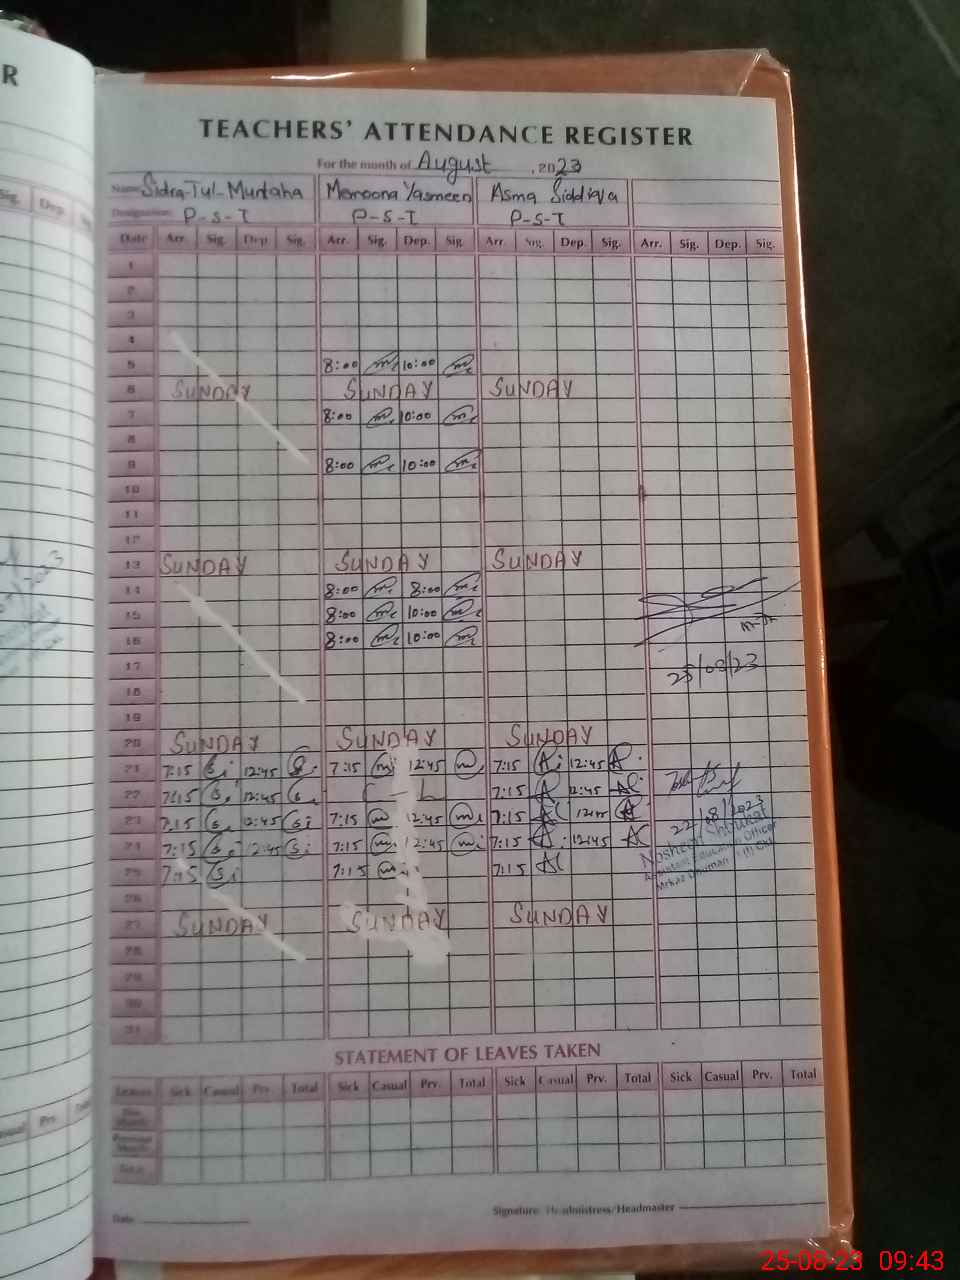 R
TEACHERS' ATTENDANCE REGISTER
For the month of August, 2023
Name Sidra-Tul-Muntaha Memoona Yasmeen Asma Siddiqa
Designation: P-S-T P-S-T P-S-T
Sig. Dep.
Date Arr. Sig. Dep. Sig. Arr. Sig. Dep. Sig. Arr. Sig. Dep. Sig. Arr. Sig. Dep. Sig.
1
2
3
4
5 8:00 10:00
6 SUNDAY SUNDAY SUNDAY
7 8:00 10:00
8
9 8:00 10:00
10
11
12
13 SUNDAY SUNDAY SUNDAY
14 8:00 8:00
15 8:00 10:00
16 8:00 10:00
17 25/08/23
18
19
20 SUNDAY SUNDAY SUNDAY
21 7:15 12:45 7:15 12:45 7:15 12:45
22 7:15 12:45 C - L 7:15 12:45
23 7:15 12:45 7:15 12:45 7:15 12:45
22/08/2023
24 7:15 12:45 7:15 12:45 7:15 12:45
Nosheen Shoukat
Assistant Education Officer
25 7:15 7:15 7:15
26
27 SUNDAY SUNDAY SUNDAY
28
29
30
31
STATEMENT OF LEAVES TAKEN
Leaves Sick Casual Prv. Total Sick Casual Prv. Total Sick Casual Prv. Total Sick Casual Prv. Total
Total
Date
Signature Headmistress/Headmaster
25-08-23 09:43